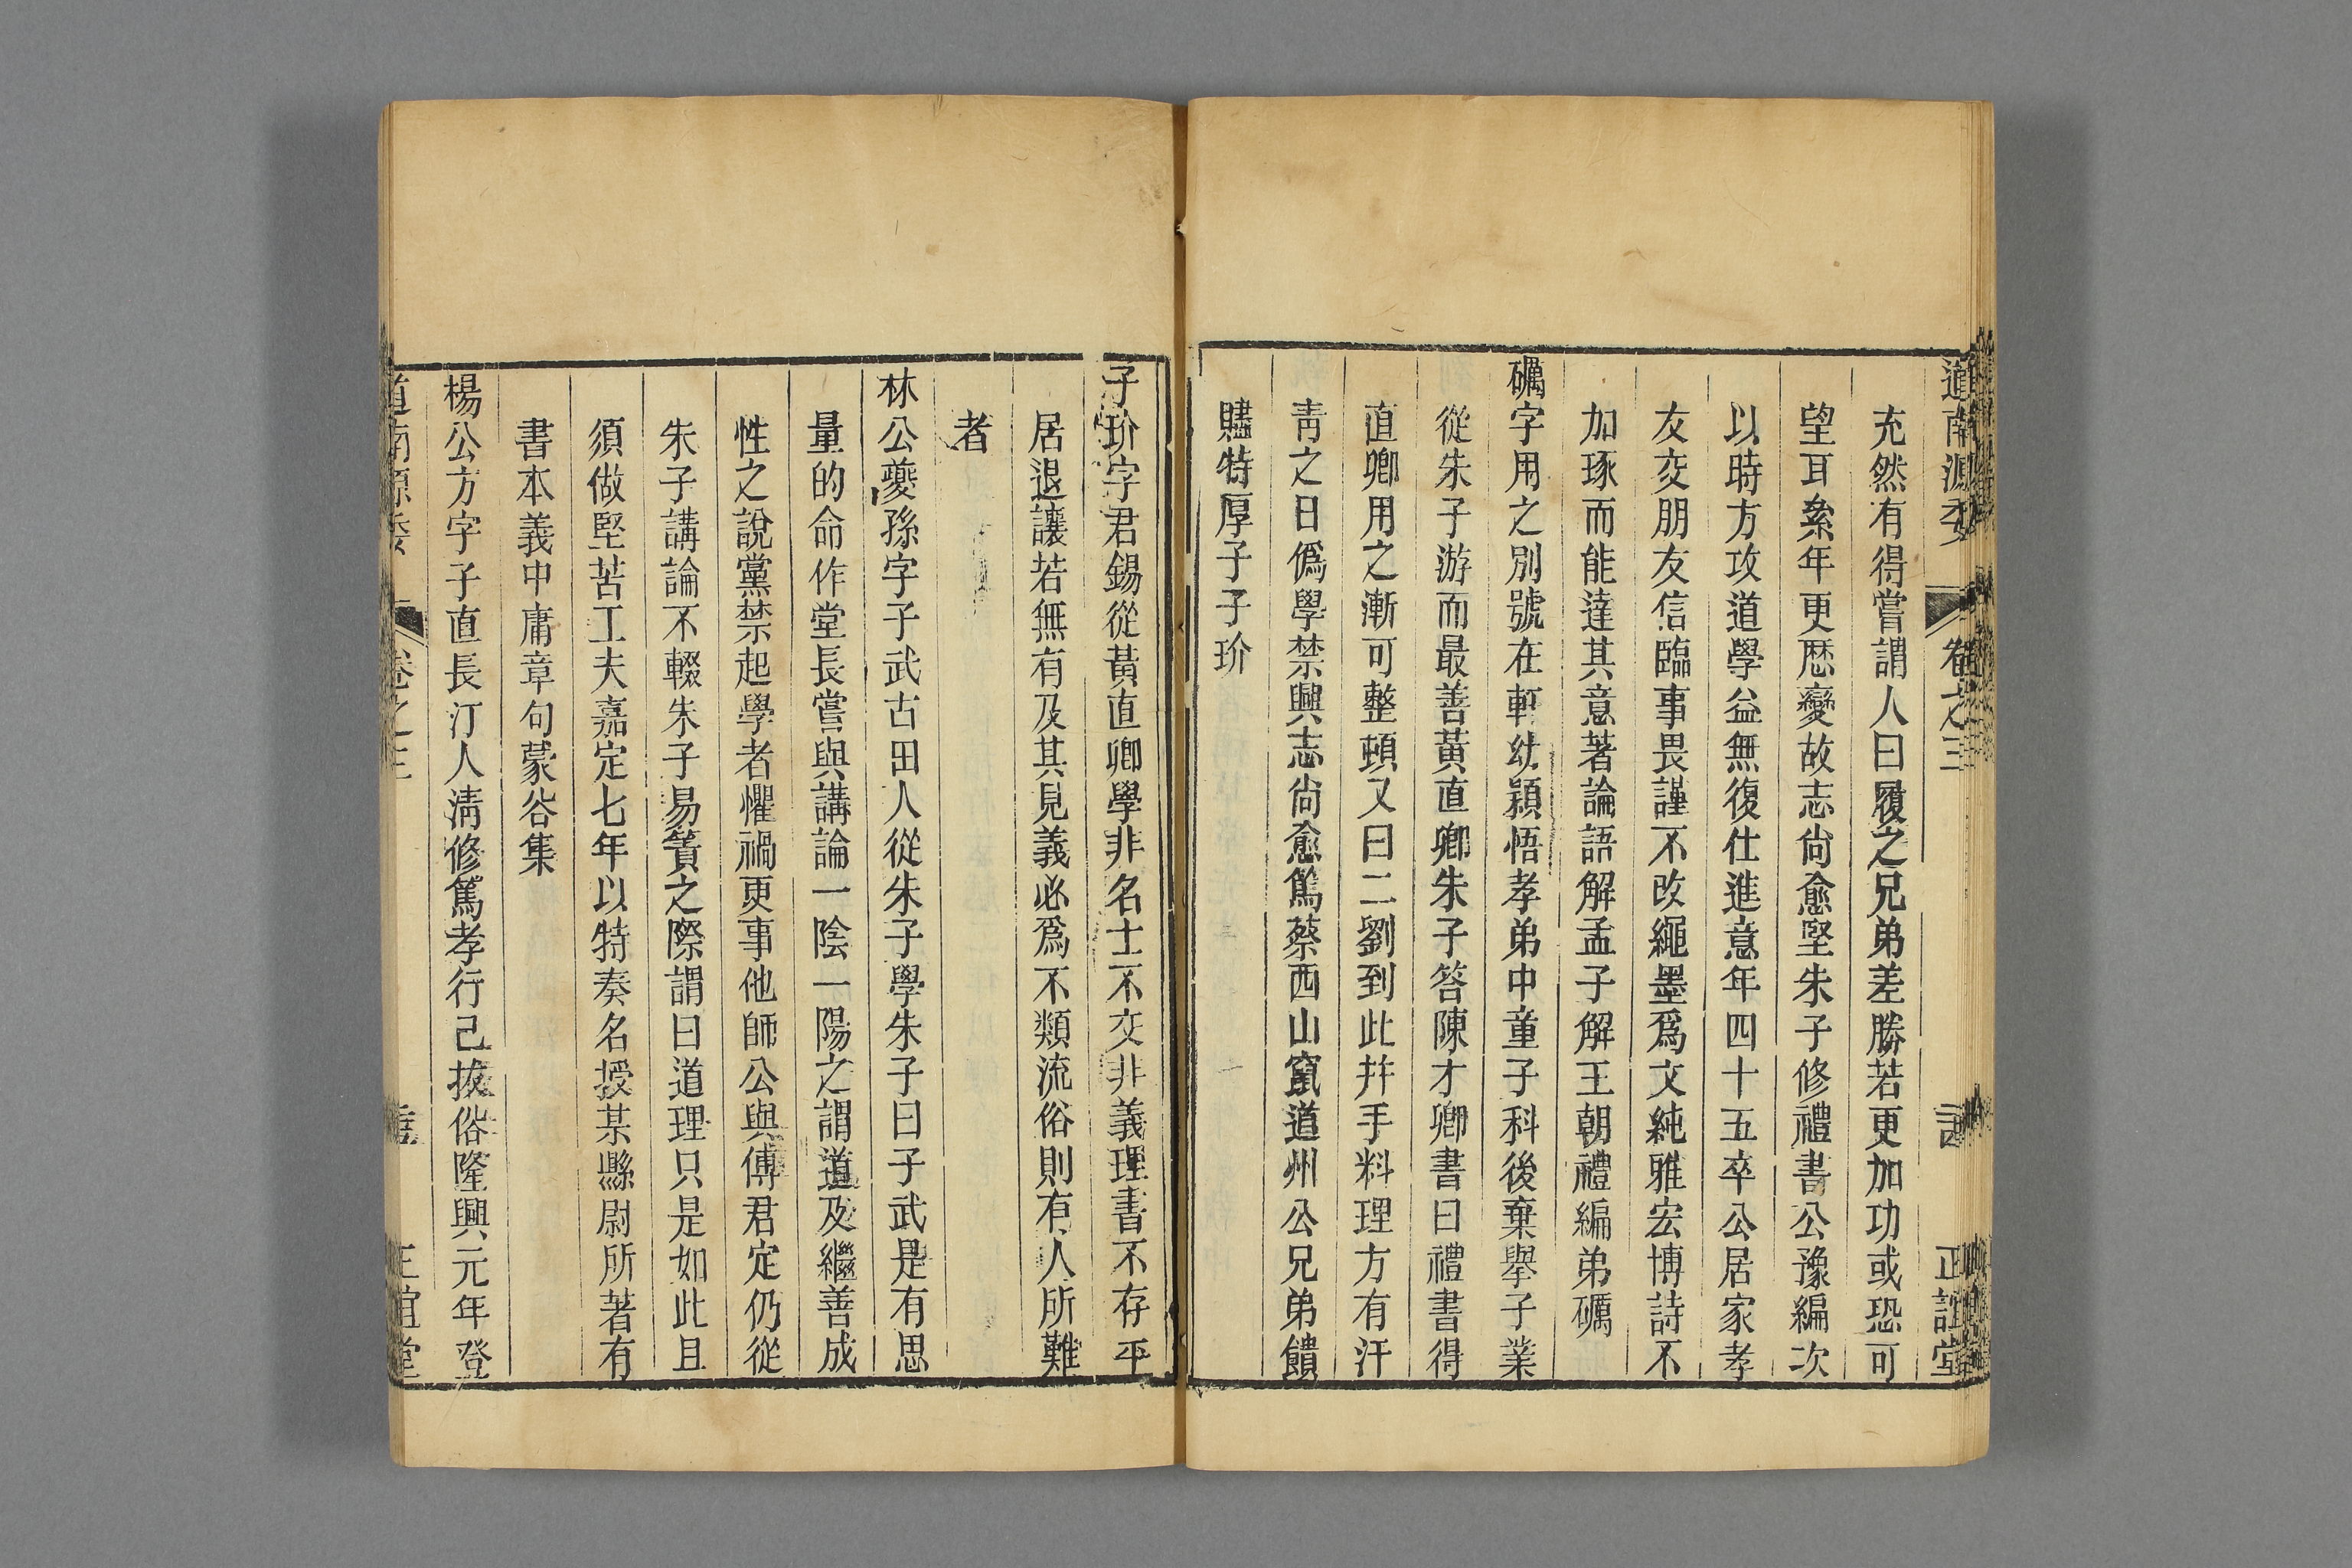 道南源委 卷之三 正誼堂
充然有得嘗謂人曰履之兄弟差勝若更加功或恐可
望耳絫年更歷變故志尙愈堅朱子修禮書公豫編次
以時方攻道學益無復仕進意年四十五卒公居家孝
友交朋友信臨事畏謹不改繩墨爲文純雅宏博詩不
加琢而能達其意著論語解孟子解王朝禮編弟礪
礪字用之別號在軒幼穎悟孝弟中童子科後棄擧子業
從朱子游而最善黃直卿朱子答陳才卿書曰禮書得
直卿用之漸可整頓又曰二劉到此幷手料理方有汗
靑之日僞學禁興志尙愈篤蔡西山竄道州公兄弟饋
贐特厚子子玠
子玠字君錫從黃直卿學非名士不交非義理書不存平
居退讓若無有及其見義必爲不類流俗則有人所難
者
林公夔孫字子武古田人從朱子學朱子曰子武是有思
量的命作堂長嘗與講論一陰一陽之謂道及繼善成
性之說黨禁起學者懼禍更事他師公與傅君定仍從
朱子講論不輟朱子易簀之際謂曰道理只是如此且
須做堅苦工夫嘉定七年以特奏名授某縣尉所著有
書本義中庸章句蒙谷集
楊公方字子直長汀人淸修篤孝行己拔俗隆興元年登
道南源委 卷之三 正誼堂